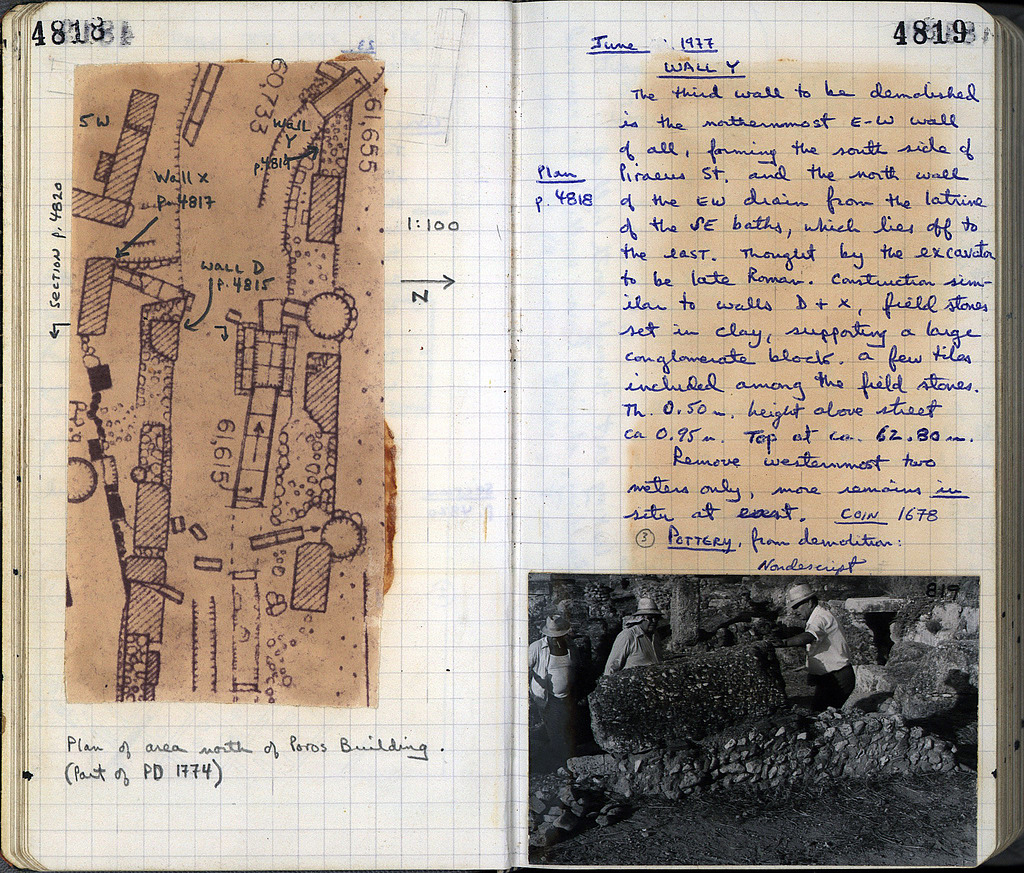 4818
60,733
61,655
5W
Wall
Y
p.4819
Wall X
p. 4817
WALL D
p. 4815
SECTION p. 4820
1:100
N
61,615
Plan of area north of Poros Building.
(Part of PD 1774)
4819
June 1977
WALL Y
The third wall to be demolished
is the northernmost E-W wall
of all, forming the south side of
Plan
Piraeus St. and the north wall
p. 4818
of the EW drain from the latrine
of the SE baths, which lies off to
the east. Thought by the excavator
to be late Roman. Construction sim-
ilar to walls D + X, field stones
set in clay, supporting a large
conglomerate block. A few tiles
included among the field stones.
Th. 0.50 m. height above street
ca 0.95 m. Top at ca. 62.80 m.
Remove westernmost two
meters only, more remains in
situ at east. COIN 1678
③ POTTERY, from demolition:
Nondescript
817